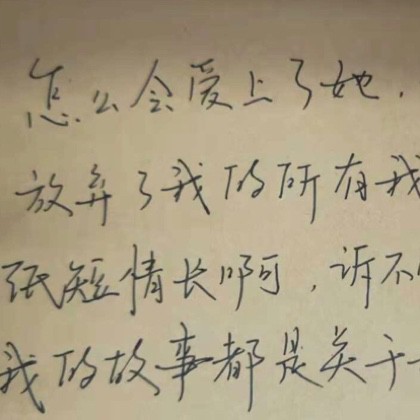 怎么会爱上了她，
放弃了我的所有我
纸短情长啊，诉不
我的故事都是关于